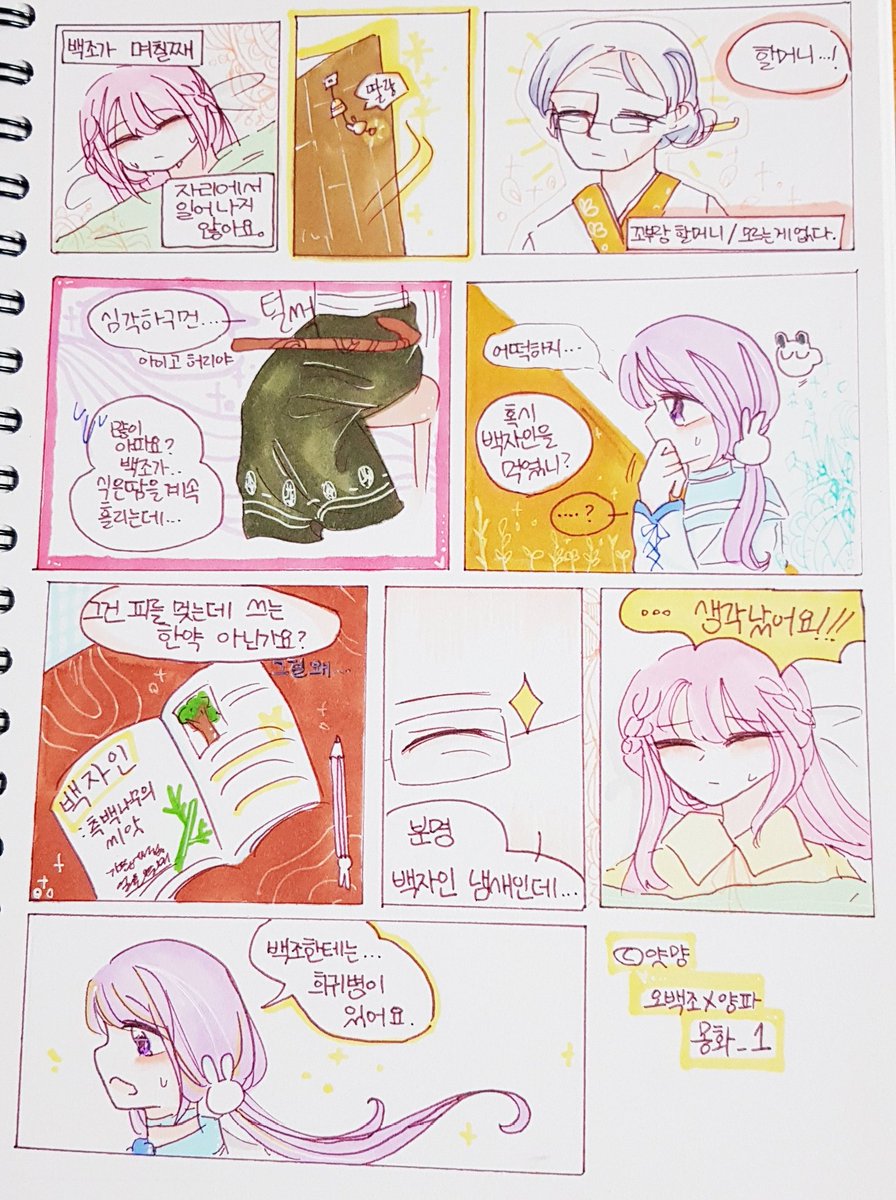 백조가 며칠째
자리에서
일어나지
않아요.
딸랑
할머니...!
꼬부랑 할머니/모르는게 없다.
심각하구먼...
털썩
아이고 허리야
많이
아파요?
백조가..
식은땀을 계속
흘리는데...
어떡하지...
혹시
백자인을
먹였니?
....?
그건 피를 멎는데 쓰는
한약 아닌가요?
그럴 왜..
백자인
:측백나무의
씨앗
분명
백자인 냄새인데...
... 생각났어요!!!
백조한테는...
희귀병이
있어요.
©얏먕
오백조X양파
몽화_1